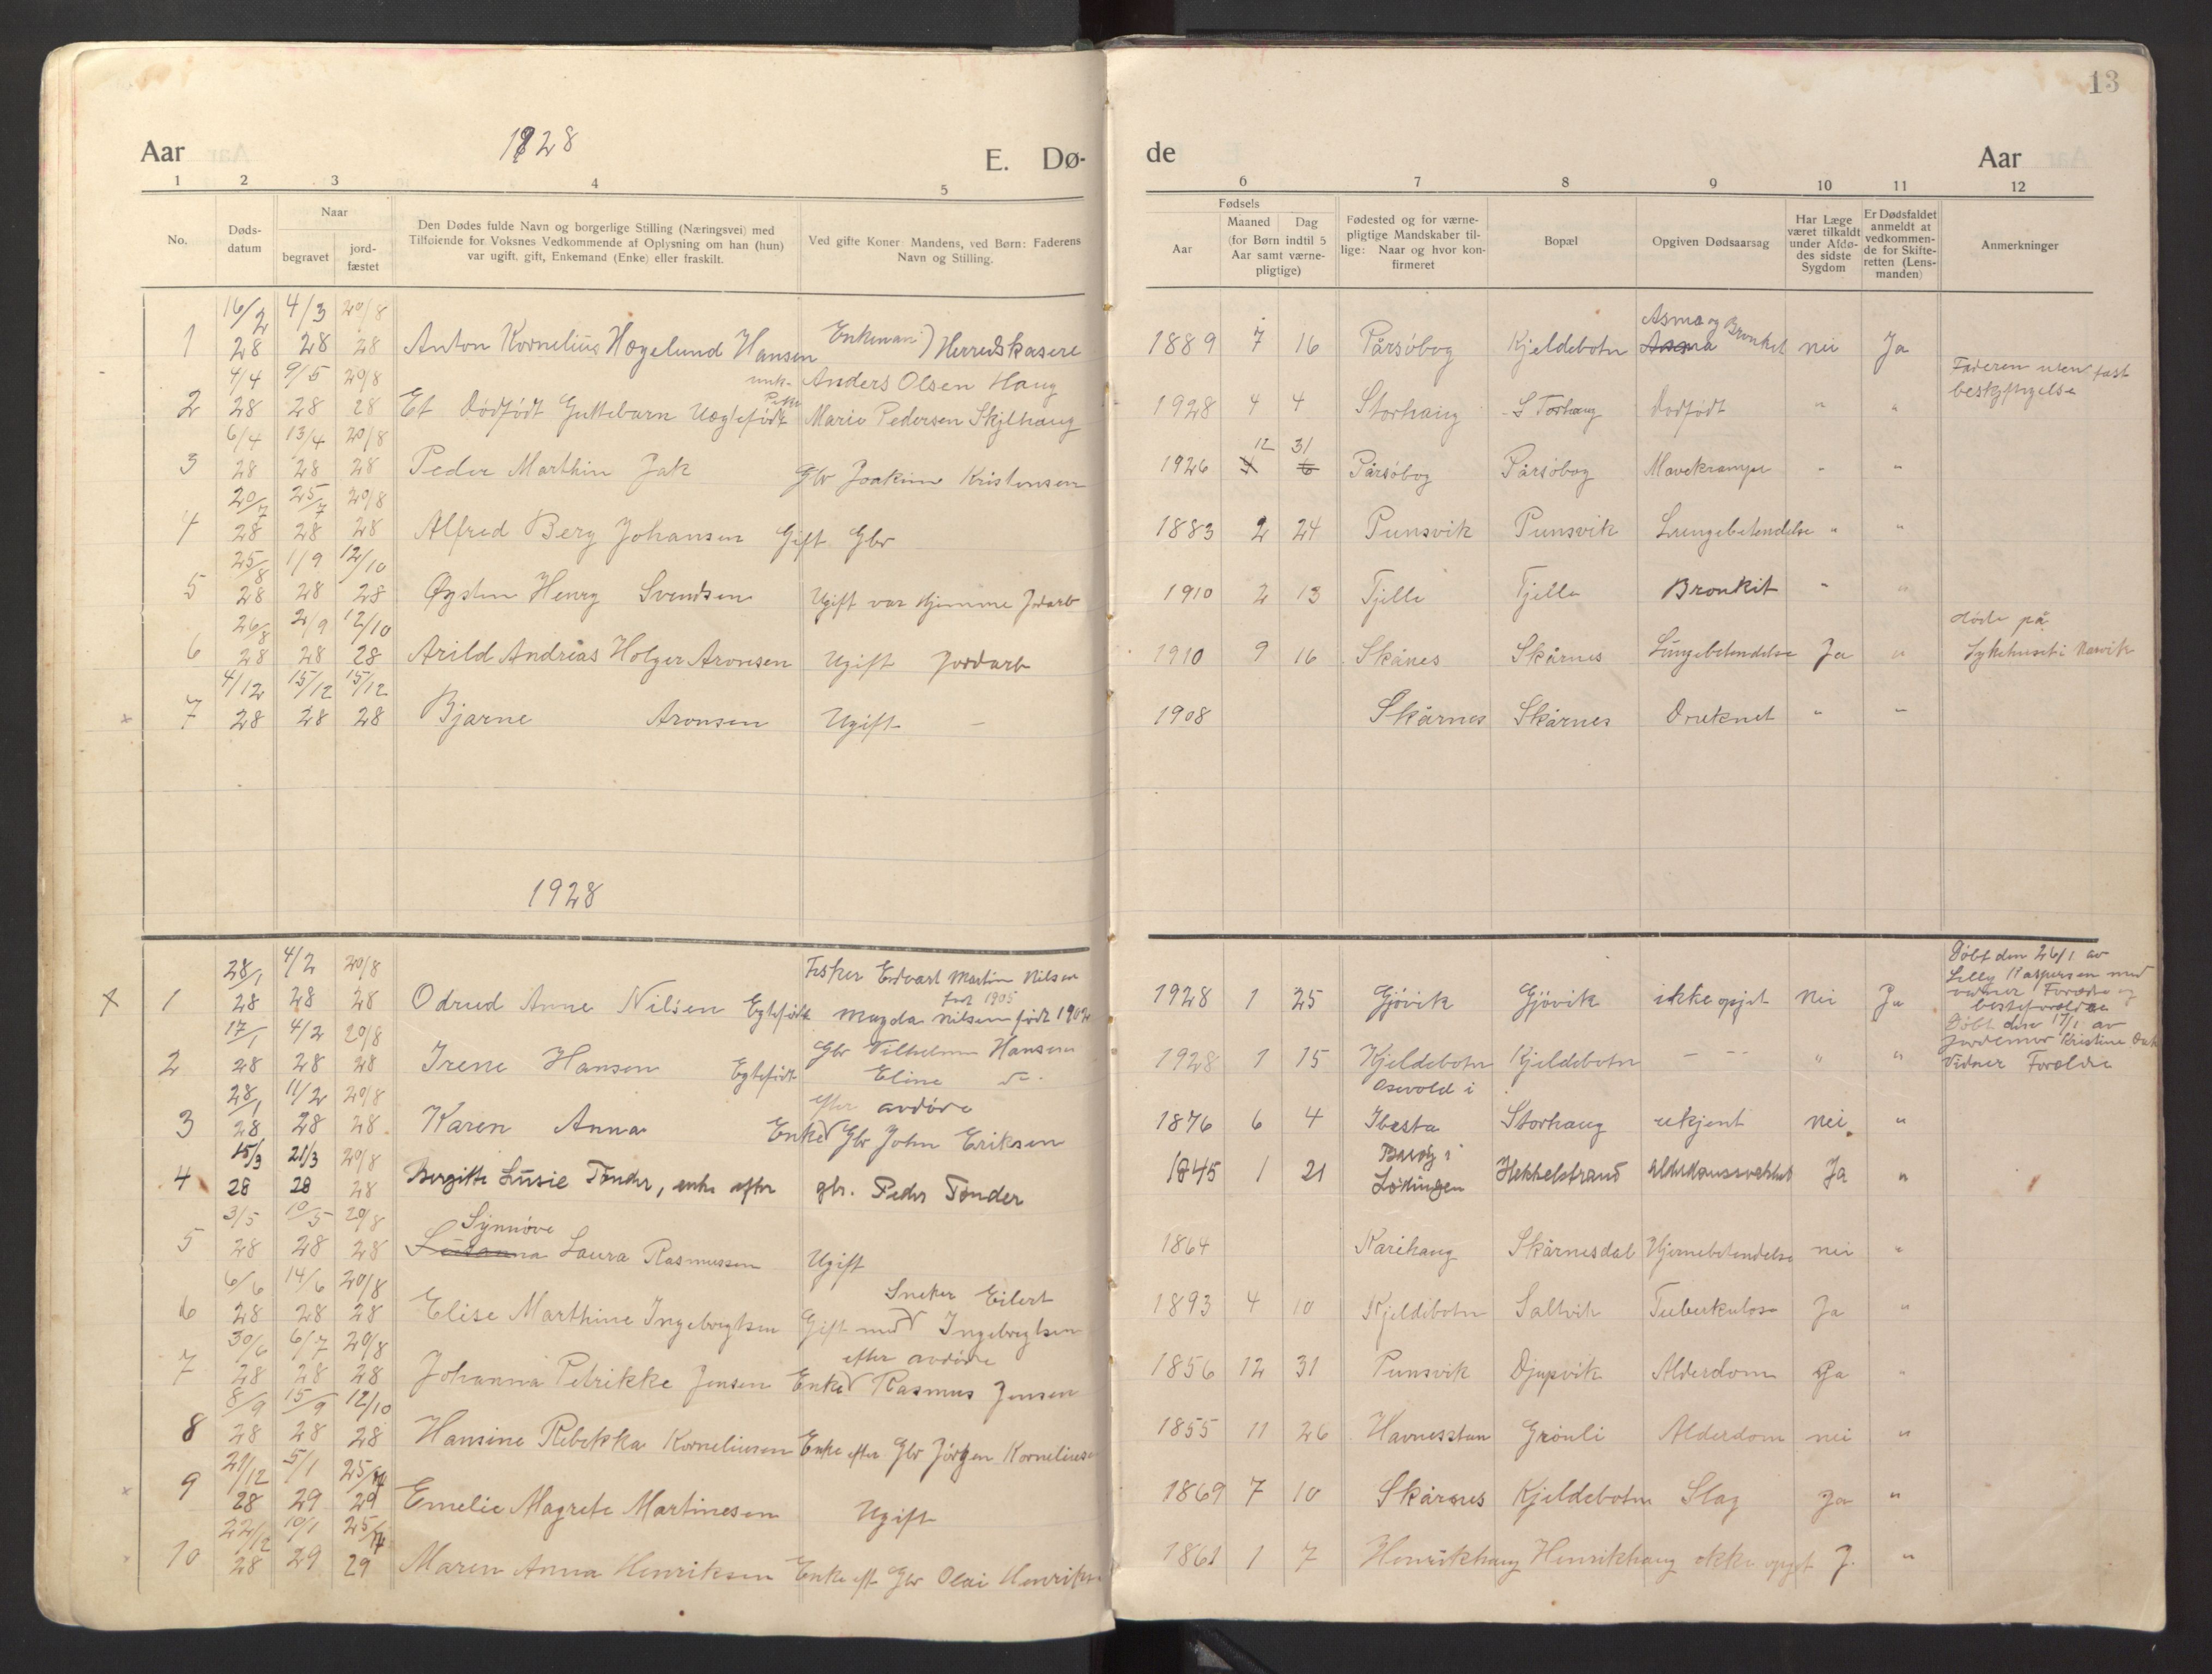 13
Aar 1928 E. Dø- de Aar
1 2 3 4 5 6 7 8 9 10 11 12
No. Døds-datum Naar begravet jord-fæstet Den Dødes fulde Navn og borgerlige Stilling (Næringsvei) med Tilføiende for Voksnes Vedkommende af Oplysning om han (hun) var ugift, gift, Enkemand (Enke) eller fraskilt. Ved gifte Koner: Mandens, ved Børn: Faderens Navn og Stilling. Fødsels Aar Maaned Dag (for Børn indtil 5 Aar samt værne-pligtige) Fødested og for værne-pligtige Mandskaber til-lige: Naar og hvor kon-firmeret Bopæl Opgiven Dødsaarsag Har Læge været tilkaldt under Afdø-des sidste Sygdom Er Dødsfaldet anmeldt at vedkommen-de for Skifte-retten (Lens-manden) Anmerkninger
1 16/2 28 4/3 28 20/8 28 Anton Kornelius Hogelund Hansen Enkeman Herredskasere 1889 7 16 Pårsöbog Kjeldebotn Asma og Bronket nei Ja
2 4/4 28 9/5 28 20/8 28 Et dødfödt Guttebarn Uegtefödt Anders Olsen Haug Marie Pedersen Skjlhaug 1928 4 4 Storhaug Storhaug Dodfödt " " Faderen uten fast beskjftigelse
3 6/4 28 13/4 28 20/8 28 Peder Marthin Jak Gbr Joakim Kristensen 1926 12 31 Pårsöbog Pårsöbog Mavekrampe " "
4 20/7 28 25/7 28 20/8 28 Alfred Berg Johansen Gift Gbr 1883 2 24 Punsvik Punsvik Lungebetendelse " "
5 25/8 28 1/9 28 12/10 28 Øysten Henry Svendsen Ugift var Hjemme Jdarb 1910 2 13 Tjelle Tjelle Bronkit " "
6 26/8 28 2/9 28 12/10 28 Arild Andreas Holger Aronsen Ugift Jordarb 1910 9 16 Skånes Skårnes Lungebetendelse Ja " döde på Sykehuset i Narvik
× 7 4/12 28 15/12 28 15/12 28 Bjarne Aronsen Ugift - 1908 Skårnes Skårnes Druknet " "
1928
× 1 28/1 28 4/2 28 20/8 28 Odrud Anne Nilsen Egtefödt Fisker Edvart Martin Nilsen född 1905 Magda Nilsen född 1902 1928 1 25 Gjövik Gjövik ikke opjet nei Ja Döbt den 26/1 av Lelly Kaspersen med vidner Foreldre og besteforeldre
2 17/1 28 4/2 28 20/8 28 Irene Hansen Egtefödt Gbr Vilhelm Hansen Eline 1928 1 15 Kjeldebotn Kjeldebotn - -- " " Döbt den 17/1 av Jordemor Kristine Vidner Foreldre
3 28/1 28 11/2 28 20/8 28 Karen Anna Enke efter avdöde Gbr John Eriksen 1876 6 4 i Ibesta Storhaug ukjent nei "
4 15/3 28 21/3 28 20/8 28 Bergitte Lusie Tönder, enke efter gbr. Peder Tönder 1845 1 21 i Lödingen Hekkelstrand Alderdomssvekket Ja "
5 3/5 28 10/5 28 20/8 28 Synnöve Laura Rasmussen Ugift 1864 Karihaug Skårnesdal Hjernebetendelse nei "
6 6/6 28 14/6 28 20/8 28 Elise Marthine Ingebregtsen Gift med Sneker Eilert Ingebregtsen 1893 4 10 Kjeldebotn Saltvik Tuberkulose Ja "
7 30/6 28 6/7 28 20/8 28 Johanna Petrikke Jensen Enke efter avdöde Rasmus Jensen 1856 12 31 Punsvik Djupvik Alderdom Ja "
8 8/9 28 15/9 28 12/10 28 Hansine Rebekka Korneliusen Enke efter Gbr Jörgen Korneliusen 1855 11 26 Havnesstun Grönli Alderdom nei "
× 9 21/12 28 5/1 29 25/4 29 Emelie Magrete Martinesen Ugift 1869 7 10 Skårnes Kjeldebotn Slag Ja "
10 22/12 28 10/1 29 25/4 29 Maren Anna Henriksen Enke eft Gbr Olai Henriksen 1861 1 7 Henrikhaug Henrikhaug okke opget J. "